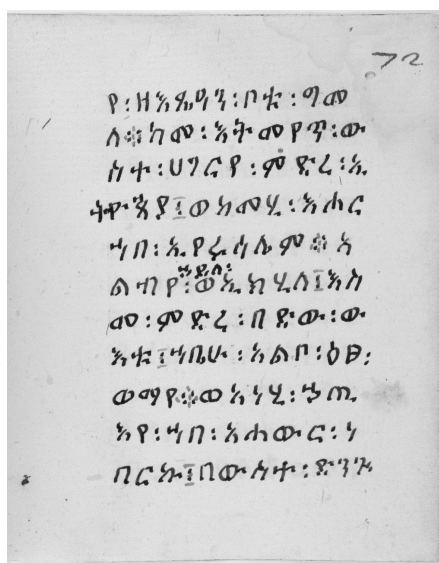 72
የ፡ዘእጼዓን፡ቦቱ፡ግመ
ለ፨ከመ፡እትመየጥ፡ው
ስተ፡ሀገርየ፡ምድረ፡ኢ
ትዮጵያ፤ወከመሂ፡እሐር
ኀበ፡ኢየሩሳሌም፨አ
ኀይለ፡
ልብየ፡ወኢክሂለ፤እስ
መ፡ምድረ፡በድው፡ው
እቱ፤ኀቤሁ፡አልቦ፡ዕፀ፡
ወማየ፨ወአነሂ፡ኀጢ
እየ፡ኀበ፡አሐውር፡ነ
በርኩ፤በውስተ፡ድንጉ